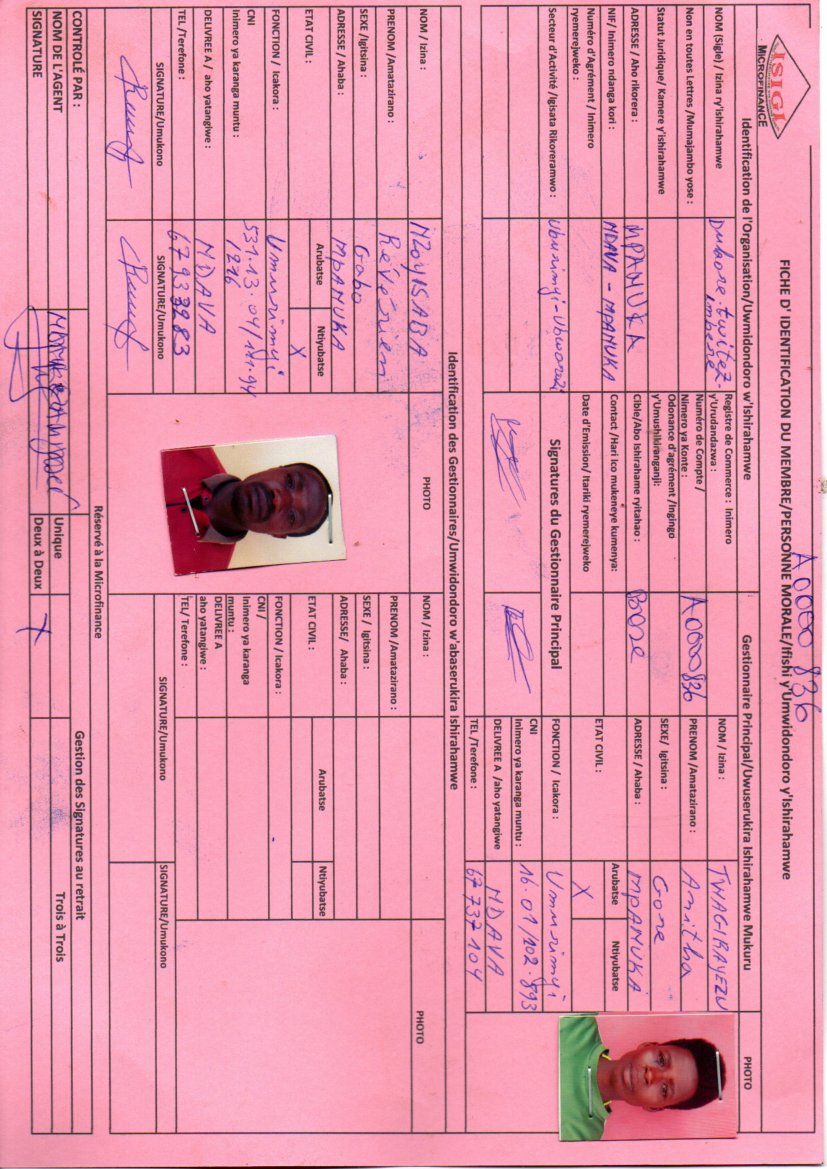 ISIGI
MICROFINANCE
A0000 836
FICHE D' IDENTIFICATION DU MEMBRE/PERSONNE MORALE/Ifishi y'Umwidondoro y'Ishirahamwe
Identification de l'Organisation/Uwmidondoro w'Ishirahamwe
Gestionnaire Principal/Uwuserukira Ishirahamwe Mukuru
PHOTO
NOM (Sigle) / Izina ry'ishirahamwe
Dukore twitez-
imbere
Registre de Commerce : Inimero
y'Urudandazwa :
NOM / Izina :
TWAGIRAYEZU
Non en toutes Lettres /Mumajambo yose :
Numéro de Compte /
Nimero ya Konte :
A0000836
PRENOM /Amatazirano :
Anitha
Statut Juridique/ Kamere y'ishirahamwe
Odonance d'agrément /Ingingo
y'Umushikiranganji:
SEXE/ Igitsina :
Gore
ADRESSE / Aho rikorera :
MPANUKA
Cible/Abo Ishirahame ryitahao :
Bose
ADRESSE / Ahaba :
MPANUKA
NIF/ Inimero ndanga kori :
NDAVA - MPANUKA
Contact /Hari ico mukeneye kumenya:
ETAT CIVIL :
Arubatse
Ntiyubatse
X
Numéro d'Agrément / Inimero
ryemerejweko :
Date d'Emission/ Itariki ryemerejweko
Secteur d'Activité /Igisata Rikoreramwo :
Uburimyi-Ubworozi
Signatures du Gestionnaire Principal
FONCTION / Icakora :
Umurimyi
CNI
Inimero ya karanga muntu :
16.01/102.893
DELIVREE A /aho yatangiwe
NDAVA
TEL /Terefone :
67737104
Identification des Gestionnaires/Umwidondoro w'abaserukira Ishirahamwe
NOM / Izina :
NZOYISABA
PHOTO
NOM / Izina :
PHOTO
PRENOM /Amatazirano :
Révérien
PRENOM /Amatazirano :
SEXE /Igitsina :
Gabo
SEXE / Igitsina :
ADRESSE / Ahaba :
MPANUKA
ADRESSE/ Ahaba :
ETAT CIVIL :
Arubatse
Ntiyubatse
X
ETAT CIVIL :
Arubatse
Ntiyubatse
FONCTION / Icakora :
Umurimyi
FONCTION / Icakora :
CNI
Inimero ya karanga muntu :
531.13.04/141.94
1276
CNI /
Inimero ya karanga
muntu :
DELIVREE A / aho yatangiwe :
NDAVA
DELIVREE A
aho yatangiwe :
TEL /Terefone :
67933283
TEL/ Terefone :
SIGNATURE/Umukono
SIGNATURE/Umukono
SIGNATURE/Umukono
SIGNATURE/Umukono
Réservé à la Microfinance
CONTROLÉ PAR :
Gestion des Signatures au retrait
NOM DE L'AGENT
Unique
Trois à Trois
SIGNATURE
Deux à Deux
X